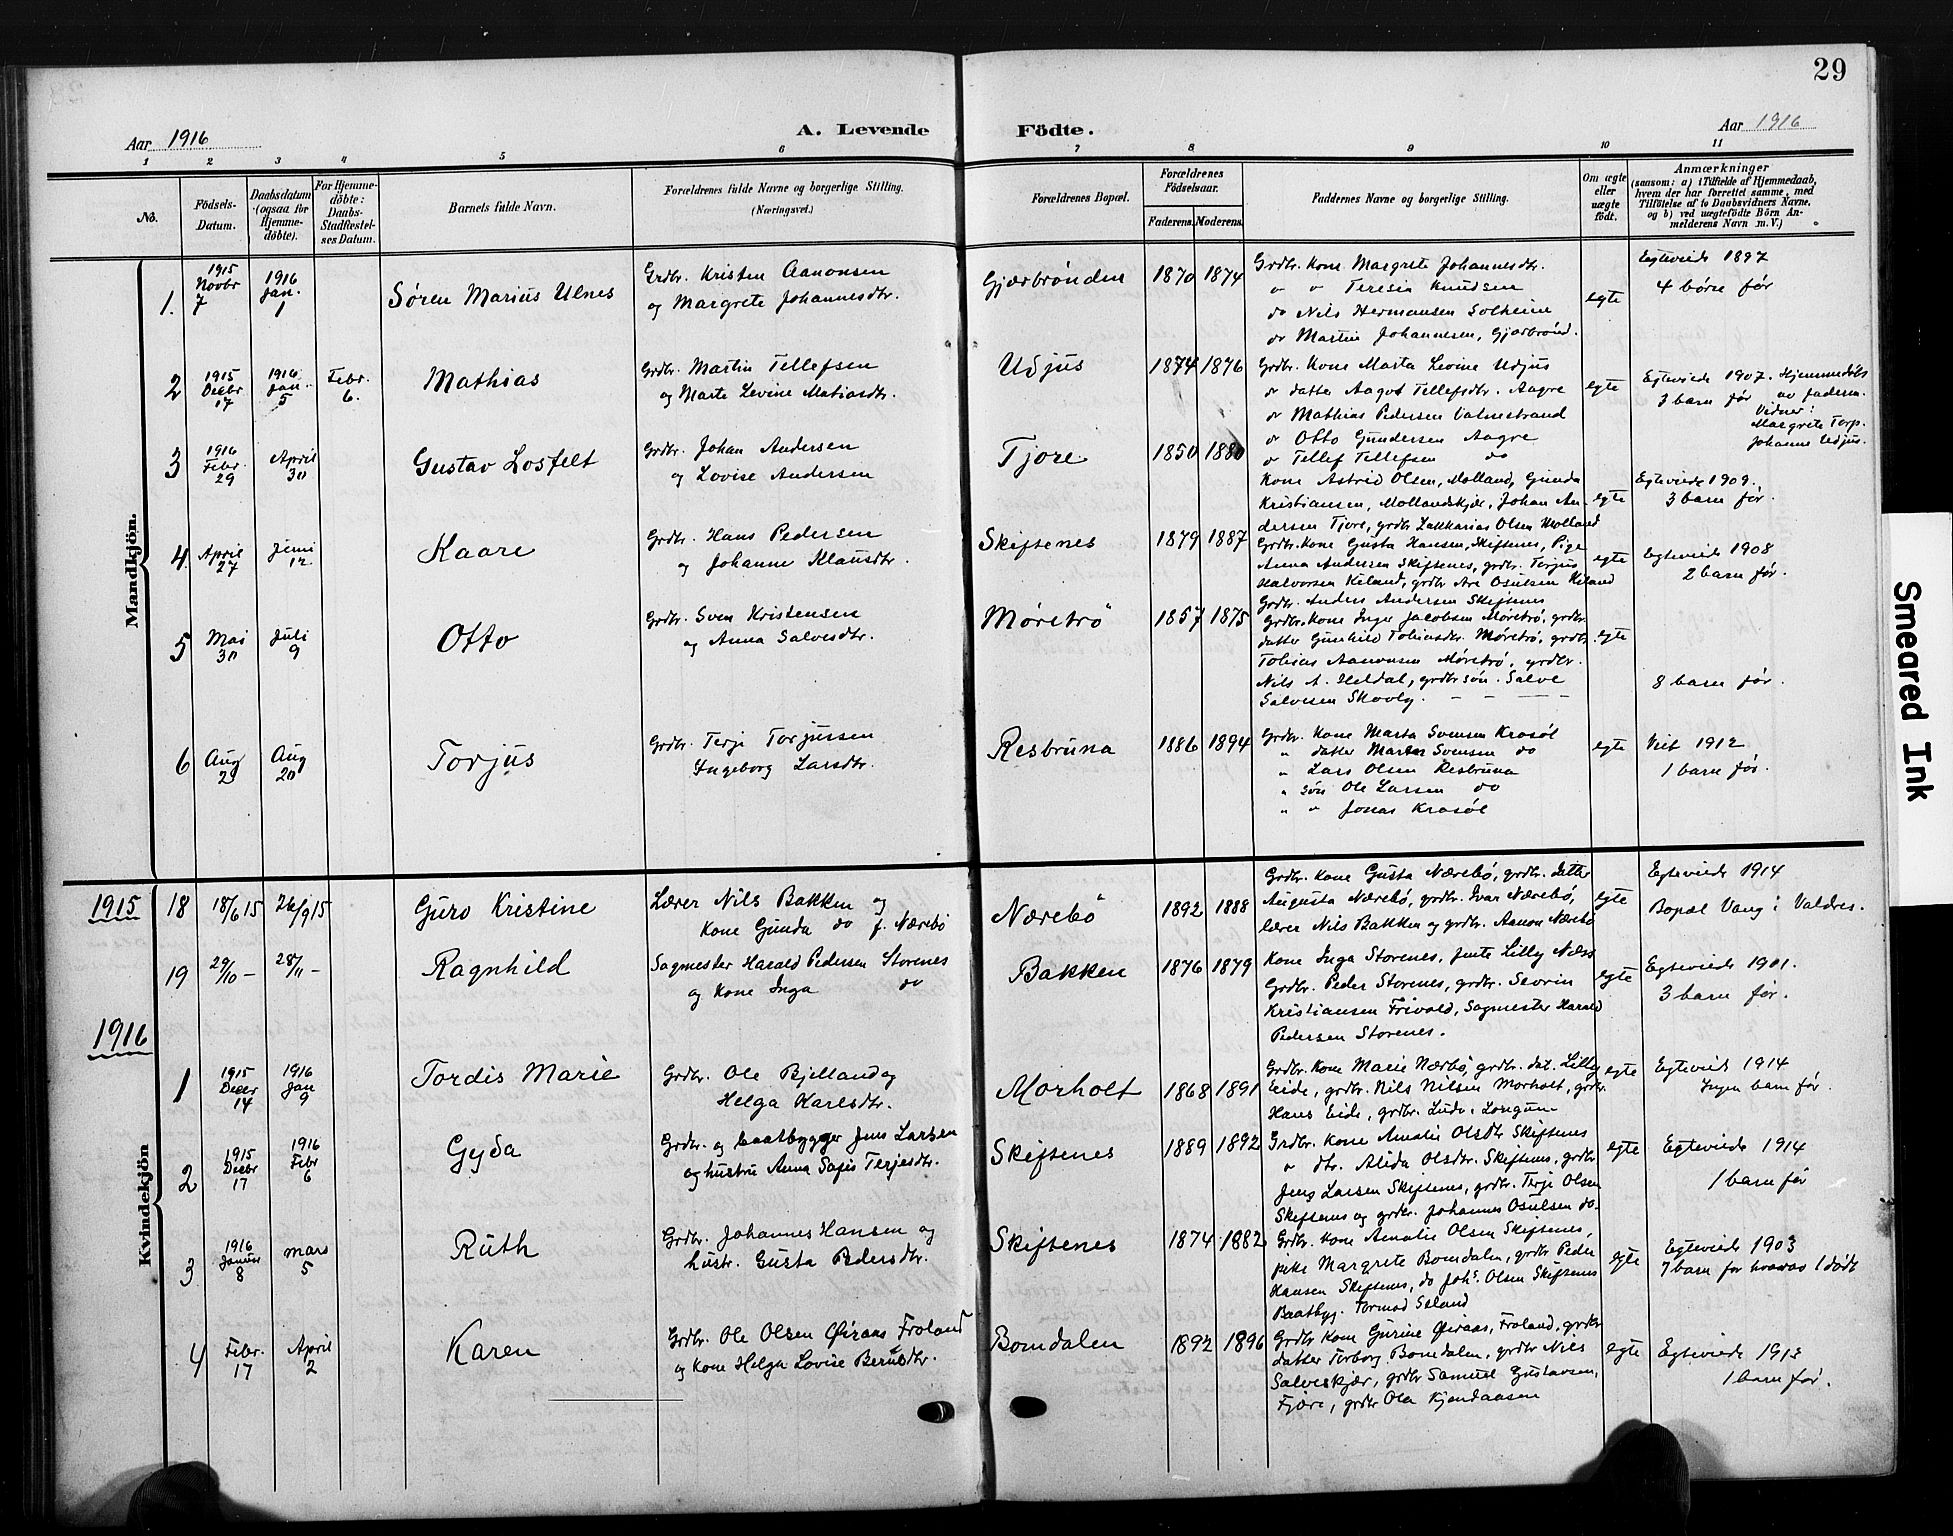 29
Aar 1916
A. Levende Födte.
Aar 1916
1 2 3 4 5 6 7 8 9 10 11
No.
Födsels-
Datum.
Daabsdatum
(ogsaa for
Hjemme-
döbte).
For Hjemme-
döbte:
Daabs-
Stadfæstel-
ses Datum.
Barnets fulde Navn.
Forældrenes fulde Navne og borgerlige Stilling.
(Næringsvei.)
Forældrenes Bopæl.
Forældrenes
Födselsaar.
Faderens. Moderens.
Faddernes Navne og borgerlige Stilling.
Om ægte
eller
uægte
født.
Anmærkninger
(saasom: a) i Tilfælde af Hjemmedaab,
hvem der har forrettet samme, med
Tilföielse af to Daabsvidners Navne,
og b) ved uægtefödte Börn An-
melderens Navn m. V.)
Mandkjön.
1.
1915
Novbr
7
1916
Jan.
1
Søren Marius Ulnes
Grdbr. Kristen Aanonsen
og Margrete Johannesdtr.
Gjærbrønden
1870 1874
Grdbr. Kone Margrete Johannesdtr.
" " Teresia Knudsen
do Nils Hermansen Solheim
do Martin Johannesen, Gjærbrønd.
egte
Egteviede 1897
4 børn før
2
1915
Decbr
17
1916
Jan.
5
Febr.
6.
Mathias
Grdbr. Martin Tellefsen
og Marte Levine Matiasdtr.
Udjus
1874 1876
Grdbr. Kone Marta Levine Udjus
" datter Aagot Tellefsdtr. Aagre
" Mathias Pedersen Valnestrand
" Otto Gundersen Aagre
" Tellef Tellefsen do
egte
Egteviede 1907. Hjemmedøbt
3 barn før av faderen.
Vidner:
Margrete Torp.
Johanne Udjus.
3
1916
Febr.
29
April
30
Gustav Losfelt
Grdbr. Johan Andersen
og Lovise Andersen
Tjore
1850 1880
Kone Astrid Olsen, Molland, Gunda
Kristiansen, Mollandskjær, Johan An-
dersen Tjore, grdbr Zakkarias Olsen Molland
egte
Egteviede 1909.
3 barn før.
4
April
27
Juni
12
Kaare
Grdbr. Hans Pedersen
og Johanne Klausdtr.
Skiftenes
1879 1887
Grdbr. Kone Gusta Hansen, Skiftenes, Pige
Anna Andersen Skiftenes, grdbr. Terjus
Halvorsen Kiland, grdbr Are Osulsen Kiland
Grdbr. Anders Andersen Skiftenes
egte
Egteviede 1908
2 barn før.
5
Mai
30
Juli
9
Otto
Grdbr. Sven Kristensen
og Anna Salvesdtr.
Møretrø
1857 1875
Grdbr. Kone Inger Jacobsen Møretrø, grdbr.
datter Gunhild Tobiasdtr. Møretrø, grdbr.
Tobias Aanonsen Møretrø, grdbr.
Nils A. Heldal, grdbr søn. Salve
Salvesen Skovly.
egte
8 barn før.
6
Aug
Aug
20
Torjus
Grdbr. Terje Torjussen
Ingeborg Larsdtr.
Resbruna
1886 1894
Grdbr. Kone Marta Svensen Krosøl
" datter Marten Svensen do
" Lars Olsen Resbruna
" Søn Ole Larsen do
" " Jonas Krosøl
egte
Viet 1912
1 barn før.
Kvindekjön
1915
18 18/6 15 26/9 15
Guro Kristine
Lærer Nils Bakken og
Kone Gunda do f. Nærebø
Nærebö
1892 1888
Grdbr. Kone Gusta Nærebø, grdbr. datter
Augusta Nærebø, grdbr. Ivar Nærebø,
lærer Nils Bakken og grdbr. Aanon Nærebø
egte
Egteviede 1914
Bopæl Vang i Valdres.
19 29/10 – 28/11 –
Ragnhild
Sagmester Harald Pedersen Storenes
og Kone Inga do
Bakken
1876 1879
Kone Inga Storenes, jente Lilly Næss
Grdbr. Peder Storenes, grdbr. Severin
Kristiansen Frivold, Sagmester Harald
Pedersen Storenes.
egte
Egteviede 1901.
3 barn før.
1916
1
1915
Decbr
14
1916
Jan
9
Tordis Marie
Grdbr. Ole Bjelland og
Helga Karlsdtr.
Morholt
1868 1891
Grdbr. Kone Marie Nærbø, grdbr. dat. Lilly
Eide, grdbr. Nils Nilsen Morholt, grdbr.
Hans Eide, grdbr. Ludv. Longum
egte
Egteviede 1914
Ingen barn før.
2
1915
Decbr
17
1916
Febr
6
Gyda
Grdbr. og baatbygger Jens Larsen
og hustru Anna Terjesdtr.
Skiftenes
1889 1892
Grdbr. Kone Amalie Olsdtr Skiftenes
" dtr. Alida Olsdtr. Skiftenes, grdbr
Jens Larsen Skiftenes, grdbr. Terje Olsen
Skiftenes og grdbr. Johannes Osulsen do.
egte
Egteviede 1914
1 barn før
3
1916
Januar
8
mars
5
Ruth
Grdbr. Johannes Hansen og
hustr. Gusta Pedersdtr.
Skiftenes
1874 1882
Grdbr. Kone Amalie Olsen Skiftenes,
pike Margrete Bomdalen, grdbr Peder
Hansen Skiftenes, do Johs. Olsen Skiftenes
Baatbyg. Tormod Sæland
egte
Egteviede 1903
7 barn før hvorav 1 dødt
4
Febr.
17
April
2
Karen
Grdbr. Ole Olsen Øiraas Froland
og Kone Helga Lovise Berntsdtr.
Bomdalen
1892 1896
Grdbr Kone Gurine Øiraas, Froland, grdbr
datter Torborg Bomdalen, grdbr Nils
Salveskjær, grdbr Samuel Gustavsen,
Fjære, grdbr Ola Kjendaasen
egte
Egteviede 1913
1 barn før.
Smeared Ink